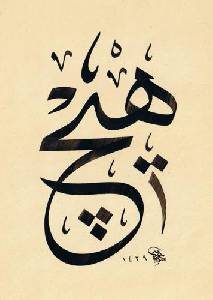 هیچ
١٤٢٩